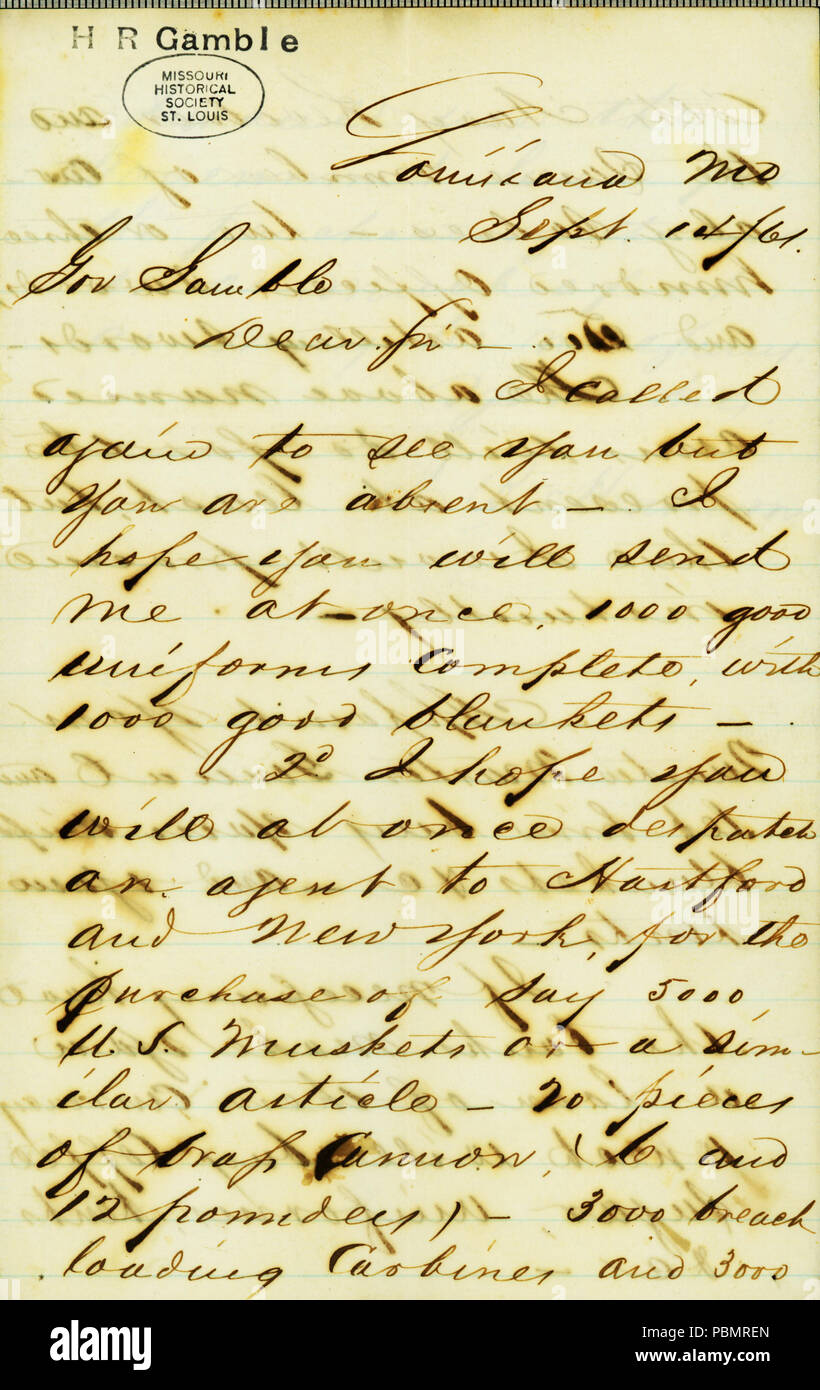 H R Gamble
MISSOURI
HISTORICAL
SOCIETY
ST. LOUIS
Louisiana Mo
Sept. 14/61.
Gov Gamble
Dear Sir -
I called
again to see you but
you are absent - I
hope you will send
me at once, 1000 good
uniforms complete, with
1000 good blankets -
2d I hope you
will at once despatch
an agent to Hartford
and New York, for the
purchase of say 5000
U.S. Muskets or a sim-
ilar article - 20 pieces
of brass Cannon, (6 and
12 pounders) - 3000 breach
loading Carbines and 3000
alamy
Image ID: PBMREN
www.alamy.com